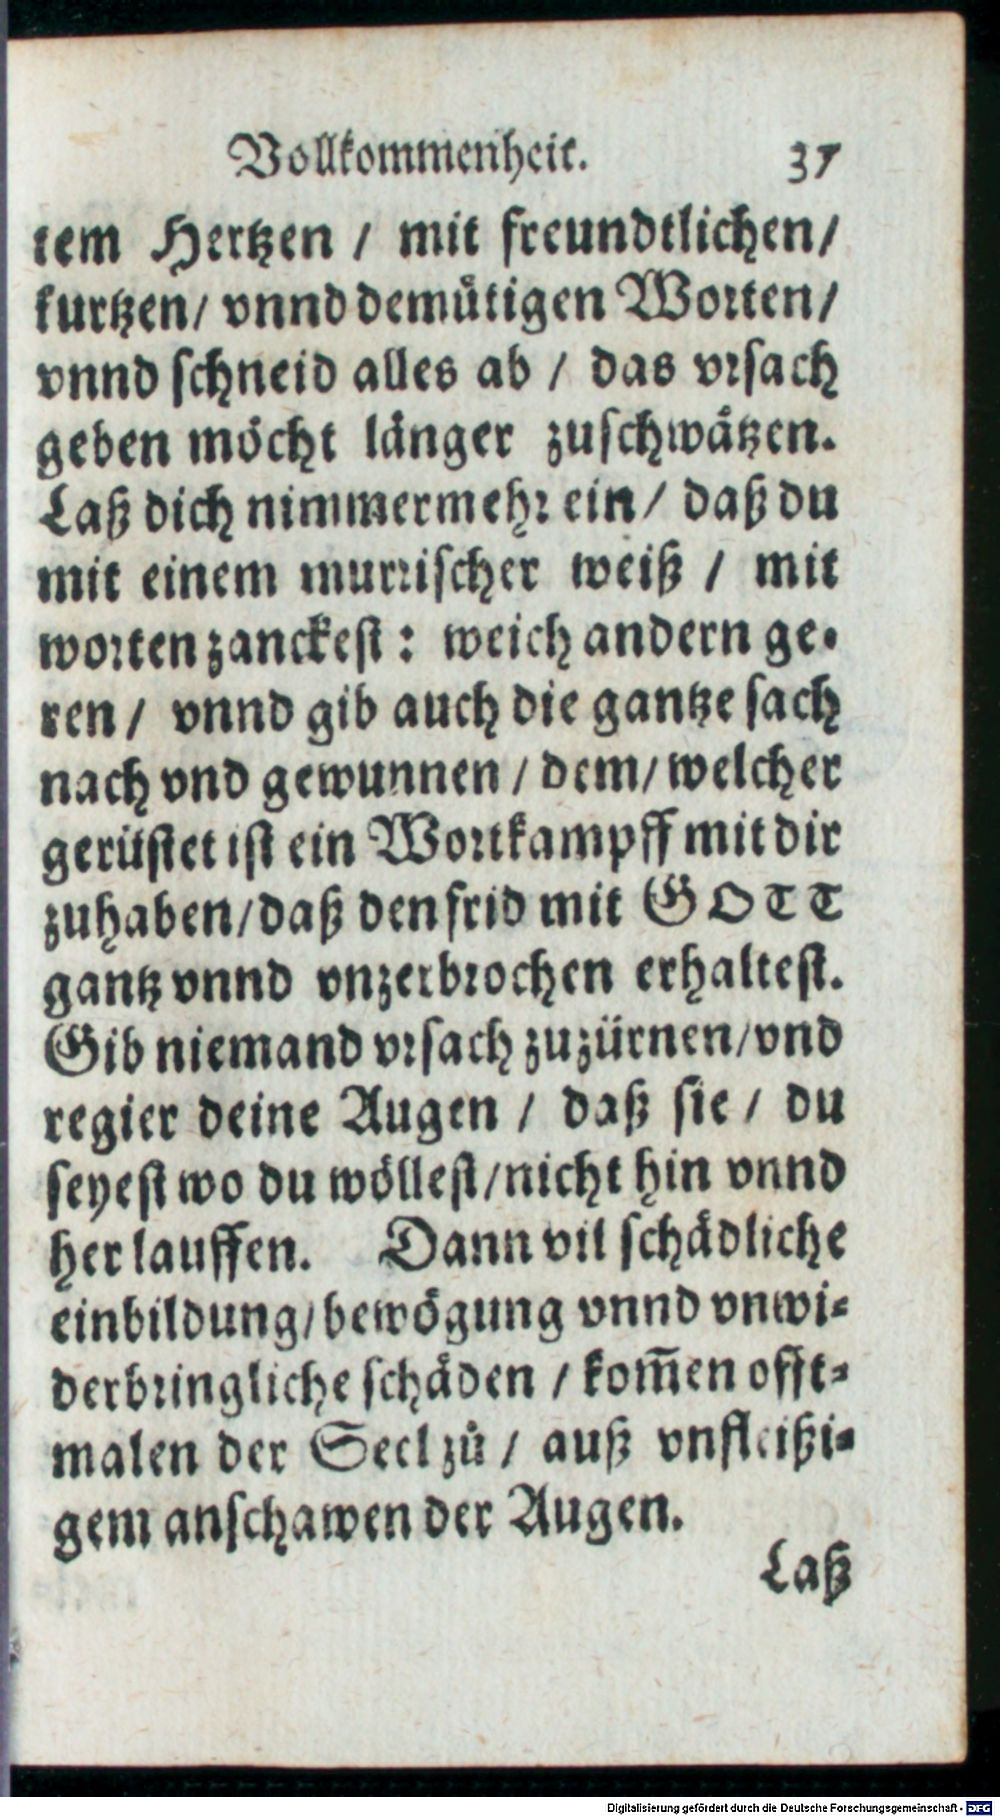 Vollkommenheit. 37
tem Hertzen / mit freundtlichen/
kurtzen/ vnnd demuͤtigen Worten/
vnnd schneid alles ab / das vrsach
geben moͤcht laͤnger zuschwaͤtzen.
Laß dich nimmermehr ein/ daß du
mit einem murrischer weiß / mit
worten zanckest: weich andern ge-
ren / vnnd gib auch die gantze sach
nach vnd gewunnen / dem/ welcher
gerüstet ist ein Wortkampff mit dir
zuhaben/daß den frid mit GOTT
gantz vnnd vnzerbrochen erhaltest.
Gib niemand vrsach zuzürnen/vnd
regier deine Augen / daß sie / du
seyest wo du woͤllest/nicht hin vnnd
her lauffen. Dann vil schaͤdliche
einbildung/bewoͤgung vnnd vnwi-
derbringliche schaͤden / kom̃en offt-
malen der Seel zů / auß vnfleißi-
gem anschawen der Augen.
Laß
Digitalisierung gefördert durch die Deutsche Forschungsgemeinschaft - DFG